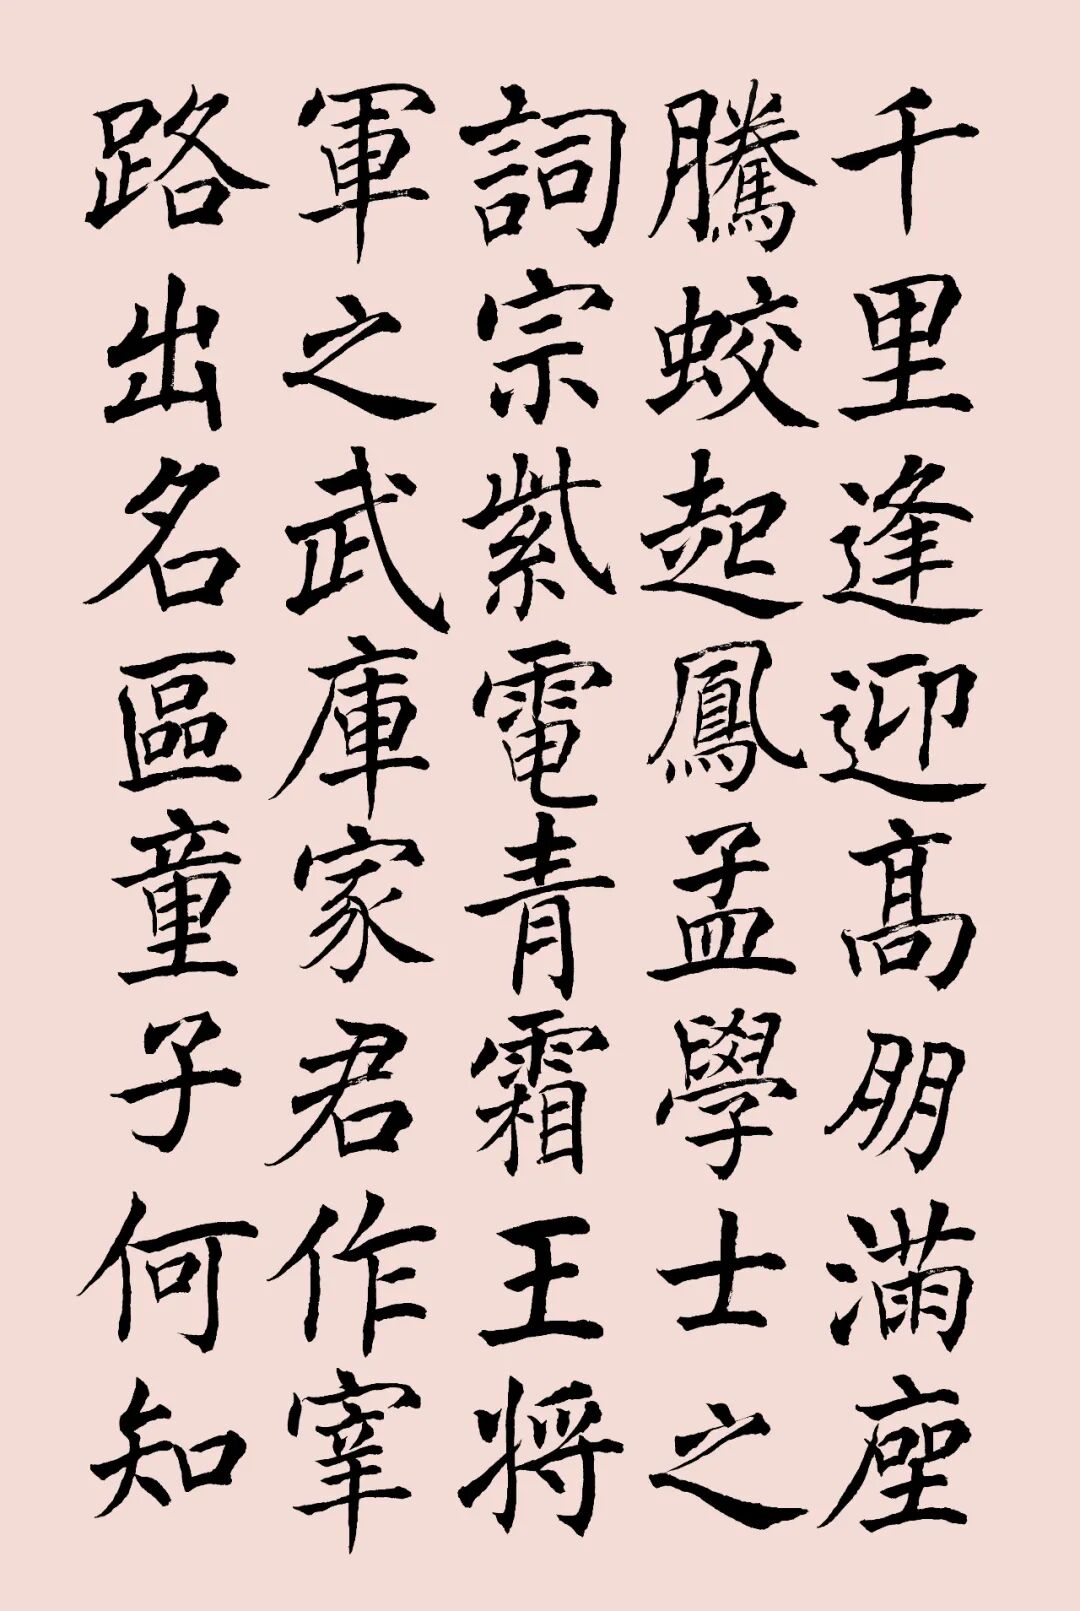 千里逢迎高朋滿座
騰蛟起鳳孟學士之
詞宗紫電青霜王將
軍之武庫家君作宰
路出名區童子何知